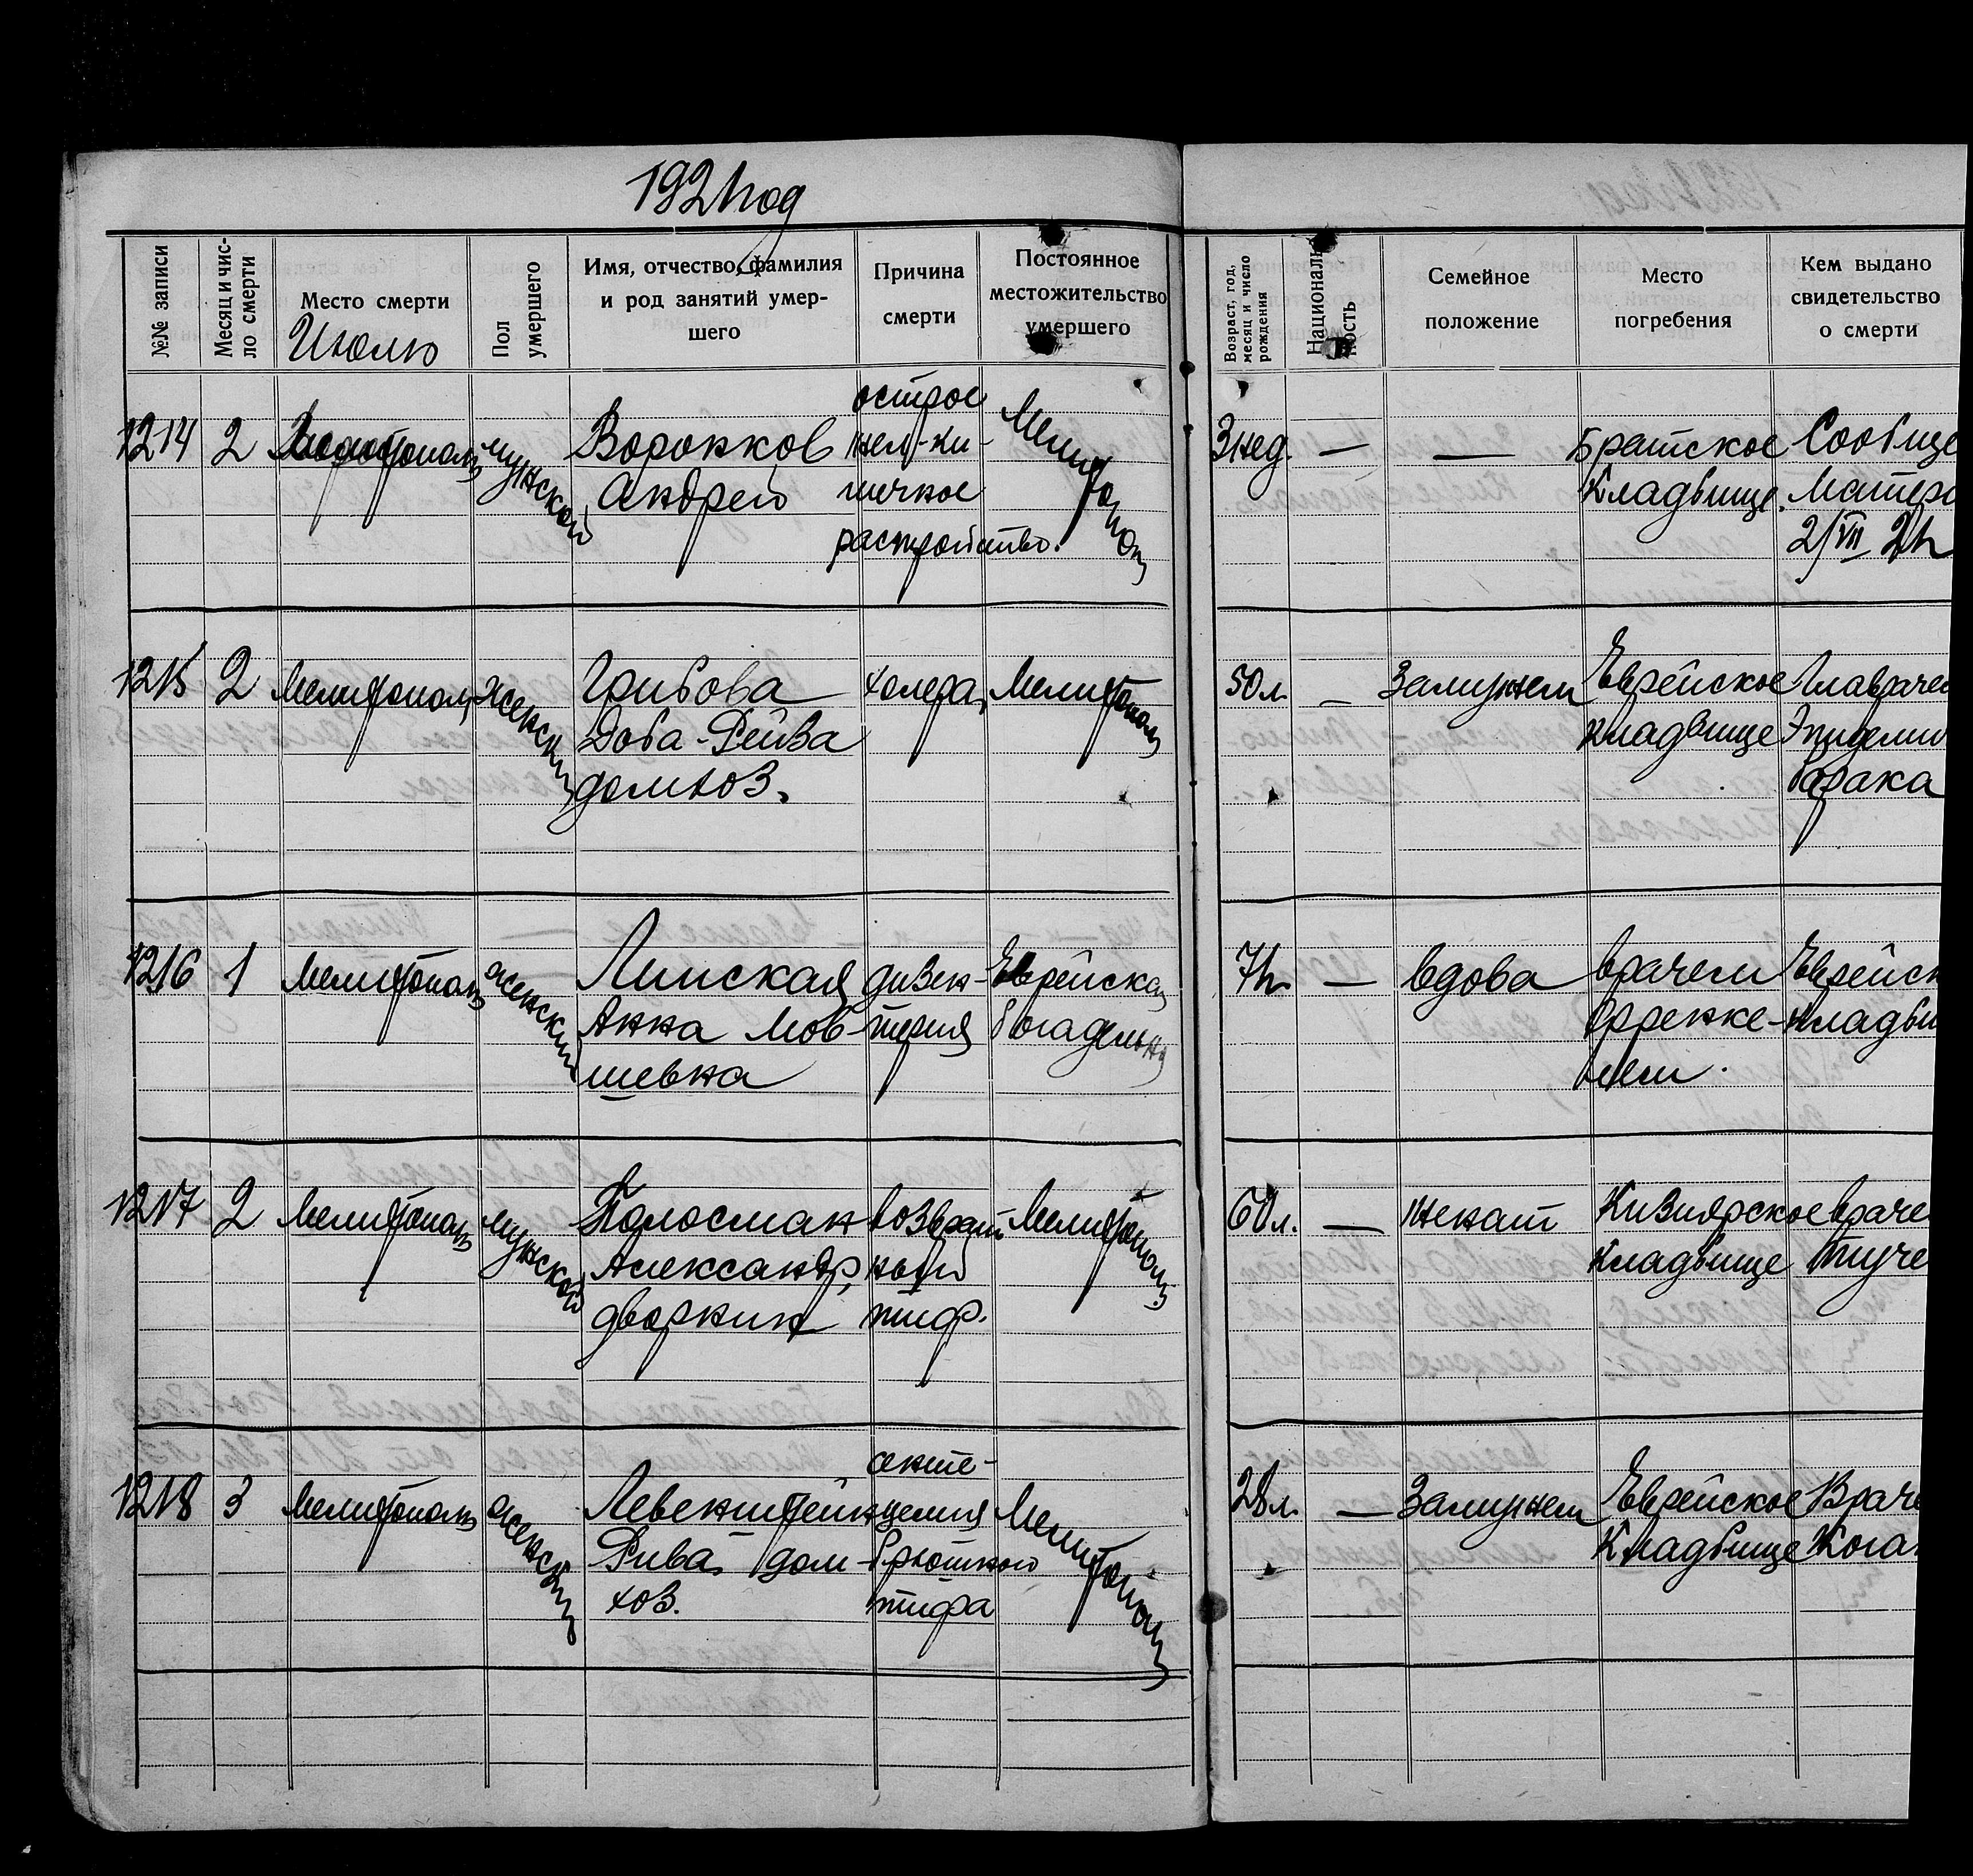 1921 год
№№ записи
Месяц и чис-
ло смерти
Место смерти
Июль
Пол
умершего
Имя, отчество, фамилия
и род занятий умер-
шего
Причина
смерти
Постоянное
местожительство
умершего
Возраст, год,
месяц и число
рождения
Националь
ность
Семейное
положение
Место
погребения
Кем выдано
свидетельство
о смерти
1214 2 мужской Воронков
Андрей
острое
жел-ки-
шечное
расстройство.
Мелитополь
3 нед. — —
Братское
Кладбище.
Сообще
Матери
2/VII 21 г
1215 2 Мелитополь женский Грибова
Доба-Рейза
домхоз.
холера Мелитополь
50 л. — Замужем Еврейское
кладбище
Главрачем
Эпидеми
барака
1216 1 Мелитополь женский Линская
Анна Мов-
шевна
дизен-
терия
Еврейская
богадельня
71 г — вдова врачем
Френке-
лем.
Еврейск
кладби
1217 2 Мелитополь мужской Полосман
Александр,
дворник
возврат
ный
тиф.
Мелитополь
60 л. — женат Кизиярское
кладбище
враче
Туче
1218 3 Мелитополь женский Левенштейн
Рива дом-
хоз.
брюшного
тифа
Мелитополь
28 л. — Замужем Еврейское
Кладбище
Враче
Кога